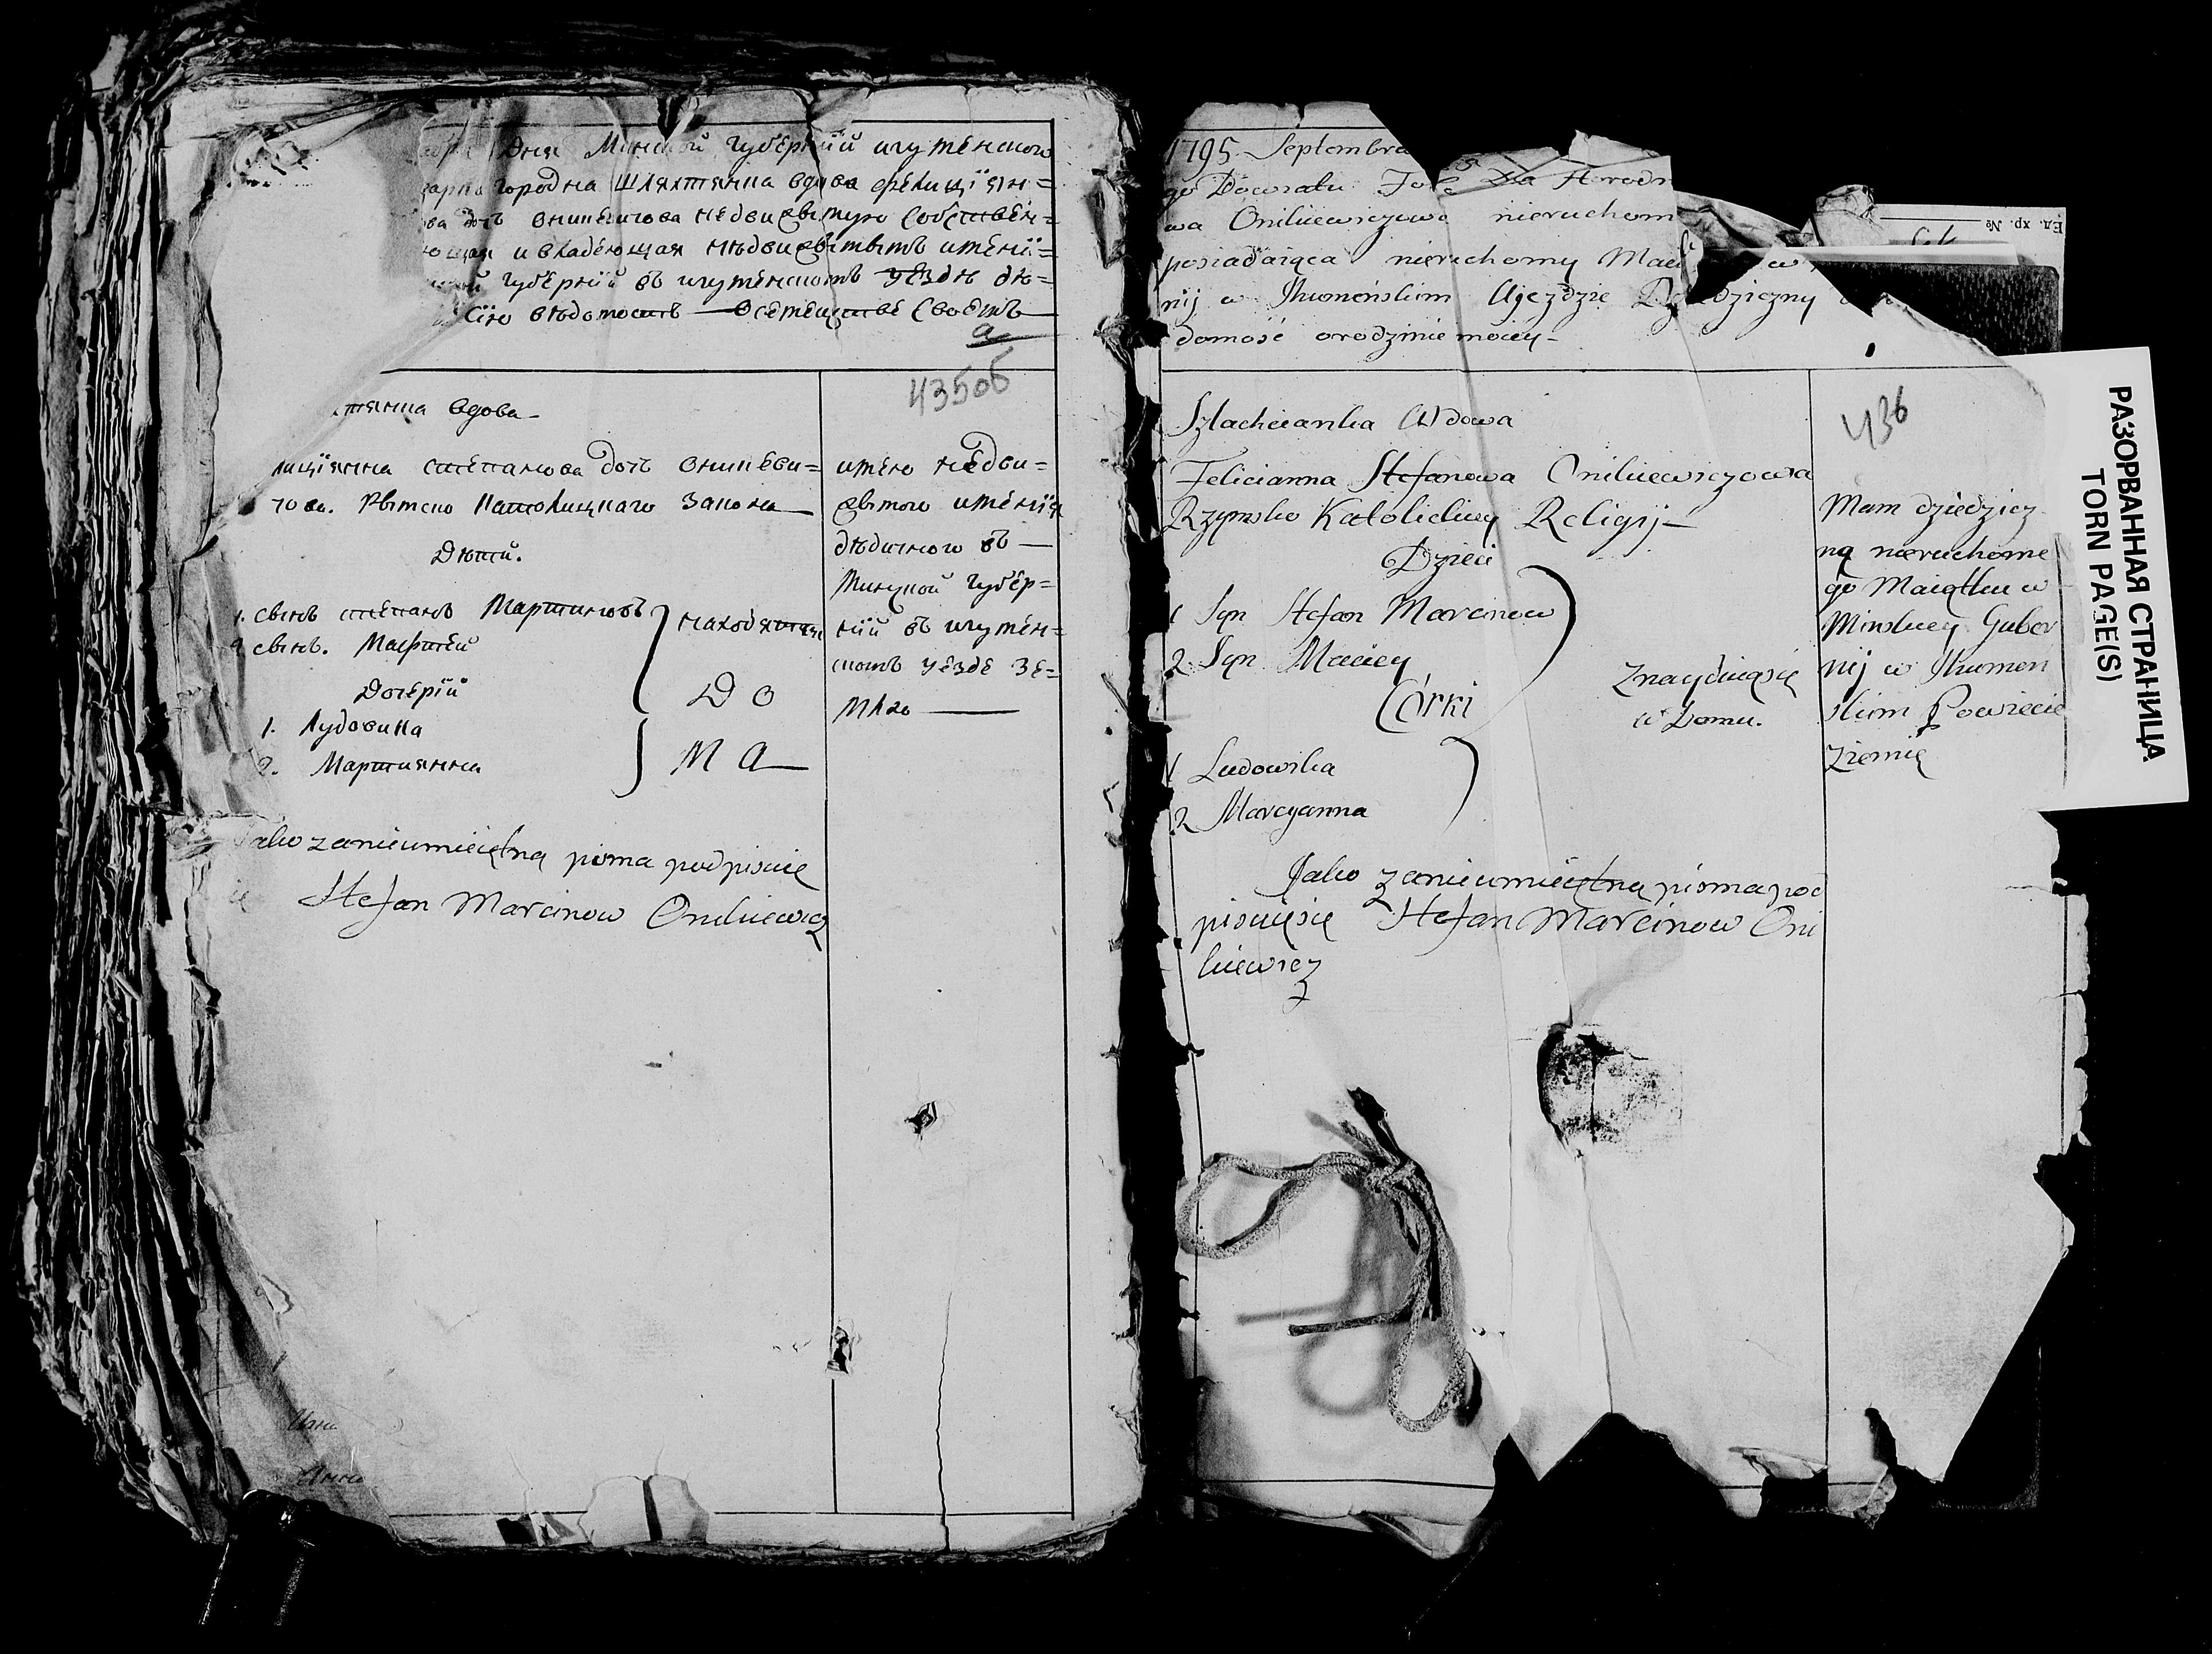 Дня Минской Губернїи игуменского
городка Шляхтянка вдова Фелицїян=
дочь Оникевичова недвижимую собствен=
ющая и владеющая недвижимымъ имѣнїи=
Губернїи въ игуменскомъ уѣздѣ дѣ=
сїю вѣдомость о семействе своемъ
435об
вдова
лицїянна степанова дочь Оникеви=
чова. Римско Католицкаго Закона
Дѣти.
1. сынъ степанъ Мартиновъ
2 сынъ. Матфей
Дочерїи
1. Лудовика
2. Марциянна
находятся
До
ма
имею недви=
жимого именїя
дѣдичного въ
Минской Губер=
нїи въ игумен=
скомъ уезде зе=
млю
Jako zanieumieiętną pisma podpisuię
się Stefan Marcinow Onikiewicz
1795 Septembra
go Powiatu
wa Onikiewiczowa nieruchom
posiadaiąca nieruchomy Maią
nij w Ihumeńskim Ujezdzie Dziedziczny
domość orodzinie moiey
436
Szlachcianka Wdowa
Felicianna Stefanowa Onikiewiczowa
Rzymsko Katolickiey Religij
Dzieci
1 Syn Stefan Marcinow
2 Syn Maciey
Córki
1 Ludowika
2 Marcyanna
Znayduiąsię
w Domu.
Mam dziedzicz
ną nieruchome
go Maiątku w
Minskiey Guber
nij w Ihumeń
skim Powiecie
Ziemię
Jako zanieumieiętną pisma pod
pisuięsię Stefan Marcinow Oni
kiewicz
Ед. хр. №
РАЗОРВАННАЯ СТРАНИЦА
TORN PAGE(S)